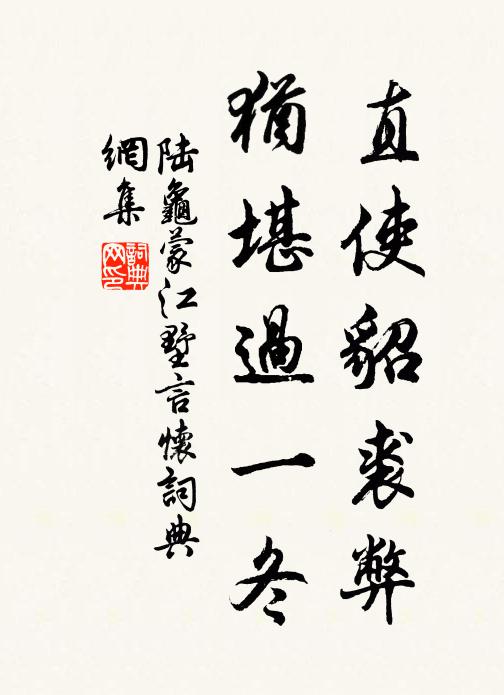 直使貂裘弊
猶堪過一冬
陸龜蒙江墅言懷詞典
網集
詞典
网印